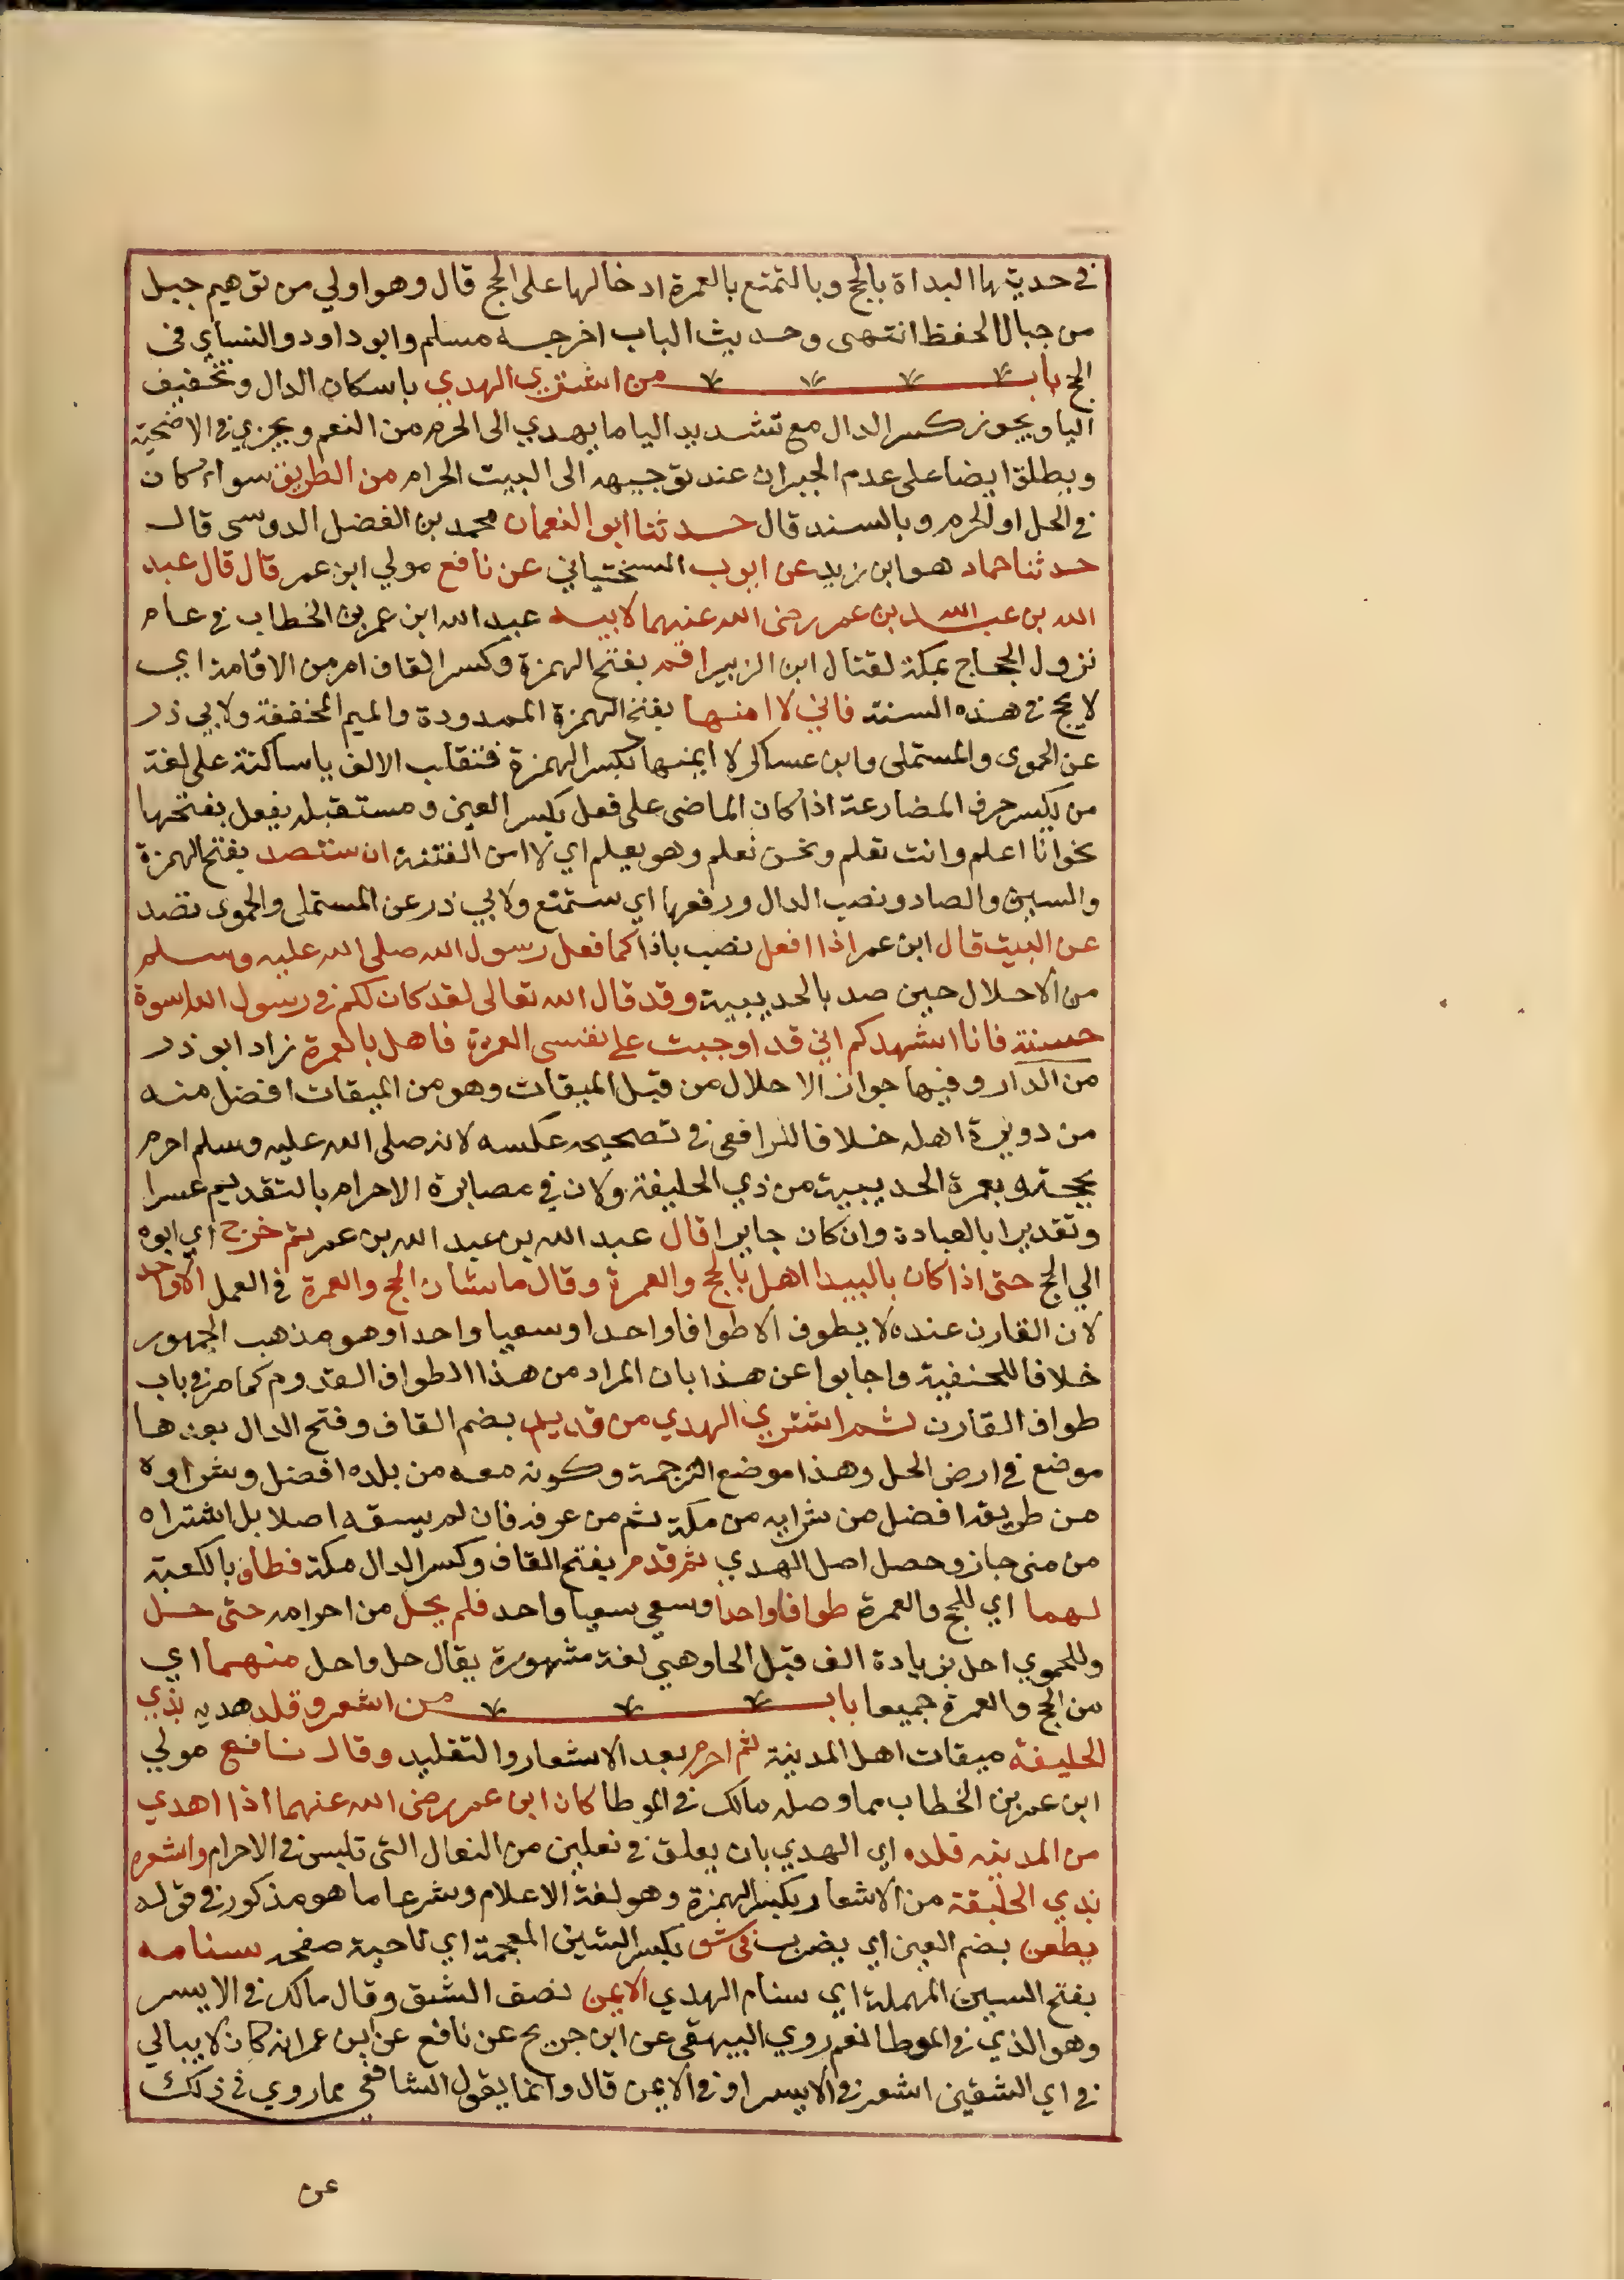 في حديثها البداة بالحج وبالتمتع بالعمرة ادخالها على الحج قال وهو اولي من توهيم جبل
من جبال الحفظ انتهى وحديث الباب اخرجه مسلم وابو داود والنسائي في
الحج باب من اشتري الهدي باسكان الدال وتخفيف
اليا ويجوز كسر الدال مع تشديد اليا ما يهدي الى الحرم من النعم ويجزي في الاضحية
ويطلق ايضا على عدم الجبران عند توجيهه الى البيت الحرام من الطريق سواء كان
في الحل او الحرم وبالسند قال حدثنا ابو النعمان محمد بن الفضل الدوسى قال
حدثنا حماد هو ابن زيد عن ايوب السختياني عن نافع مولي ابن عمر قال قال عبد
الله بن عبد الله بن عمر رضى الله عنهما لابيه عبد الله ابن عمر بن الخطاب في عام
نزول الحجاج بمكة لقتال ابن الزبير اقم بفتح الهمزة وكسر القاف امر من الاقامة اي
لا يحج في هذه السنة فاني لا امنها بفتح الهمزة الممدودة والميم المخففة ولابي ذر
عن الحموى والمستملى وابن عساكر لا ايمنها بكسر الهمزة فتنقلب الالف يا ساكنة على لغة
من يكسر حرف المضارعة اذا كان الماضى على فعل بكسر العين ومستقبله يفعل بفتحها
نحو انا اعلم وانت تعلم ونحن نعلم وهو يعلم اي لا امن الفتنة ان ستصد بفتح الهمزة
والسين والصاد ونصب الدال ورفعها اي ستمنع ولابي ذر عن المستملى والحموى تصد
عن البيت قال ابن عمر اذا افعل نصب باذا كما فعل رسول الله صلى الله عليه وسلم
من الاحلال حين صد بالحديبية وقد قال الله تعالى لقد كان لكم في رسول الله اسوة
حسنة فانا اشهدكم اني قد اوجبت على نفسى العمرة فاهل بالعمرة زاد ابو ذر
من الدار وفيها جواز الاحلال من قبل الميقات وهو من الميقات افضل منه
من دويرة اهله خلافا للرافعى في تصحيحه عكسه لانه صلى الله عليه وسلم احرم
بحجته وبعمرة الحديبية من ذي الحليفة ولان في مصابرة الاحرام بالتقديم عسرا
وتغديرا بالعبادة وان كان جايرا قال عبد الله بن عبد الله بن عمر ثم خرج اي ابوه
الي الحج حتى اذا كان بالبيدا اهل بالحج والعمرة وقال ما شان الحج والعمرة في العمل الا واحد
لان القارن عنده لا يطوف الا طوافا واحدا وسعيا واحدا وهو مذهب الجمهور
خلافا للحنفية واجابوا عن هذا بان المراد من هذا الطواف القدوم كما مر في باب
طواف القارن ثم اشتري الهدي من قديد بضم القاف وفتح الدال بعدها
موضع في ارض الحل وهذا موضع الترجمة وكونه معه من بلده افضل وشراوه
من طريقه افضل من شرايه من مكة ثم من عرفة فان لم يسقه اصلا بل اشتراه
من منى جاز وحصل اصل الهدي ثم قدم بفتح القاف وكسر الدال مكة فطاف بالكعبة
لهما اي للحج والعمرة طوافا واحدا وسعي سعيا واحد فلم يحل من احرامه حتى حل
وللحموي احل بزيادة الف قبل الحا وهي لغة مشهورة يقال حل واحل منهما اي
من الحج والعمرة جميعا باب من اشعر وقلد هديه بذي
الحليفة ميقات اهل المدينة ثم احرم بعد الاشعار والتقليد وقال نافع مولي
ابن عمر بن الخطاب مما وصله مالك في الموطا كان ابن عمر رضى الله عنهما اذا اهدي
من المدينه قلده اي الهدي بان يعلق في نعلين من النعال التى تلبس في الاحرام واشعره
بذي الحليفة من الاشعار بكسر الهمزة وهو لغة الاعلام وشرعا ما هو مذكور في قوله
يطعن بضم العين اي يضرب في شق بكسر الشين المعجمة اي ناحية صفحه سنامه
بفتح السين المهملة اي سنام الهدي الايمن نصف الشق وقال مالك في الايسر
وهو الذي في الموطا نعم روي البيهقى عن ابن جريج عن نافع عن بن عمر انه كان لا يبالي
في اي الشقين اشعر في الايسر او في الايمن قال وانما يقول الشافعى مما روي في ذلك
عن